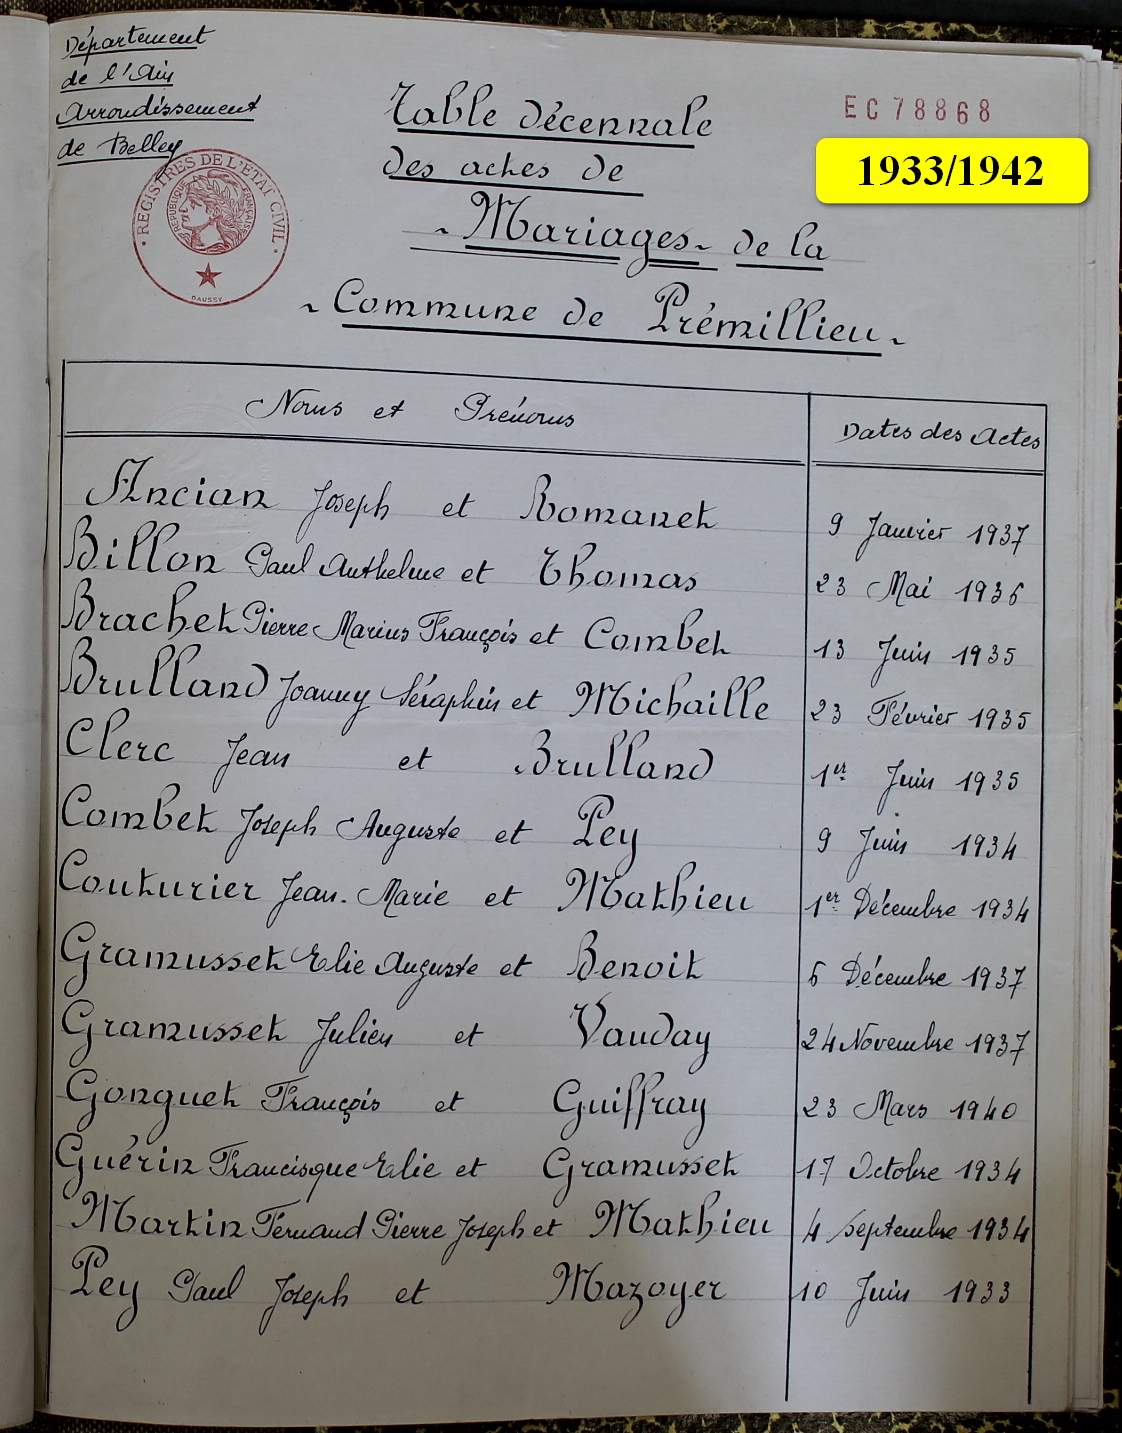 Département
de l'Ain
Arrondissement
de Belley
REGISTRES DE L'ETAT CIVIL
REPUBLIQUE FRANÇAISE
DAUSSY
EC 78868
1933/1942
Table décennale
des actes de
- Mariages - de la
- Commune de Prémillieu -
Noms et Prénoms Dates des Actes
Ancian Joseph et Romanet 9 Janvier 1937
Billon Paul Anthelme et Thomas 23 Mai 1936
Brachet Pierre Marius François et Combet 13 Juin 1935
Brulland Joanny Séraphin et Michaille 23 Février 1935
Clerc Jean et Brulland 1er Juin 1935
Combet Joseph Auguste et Pey 9 Juin 1934
Couturier Jean-Marie et Mathieu 1er Décembre 1934
Gramusset Elie Auguste et Benoit 6 Décembre 1937
Gramusset Julien et Vauday 24 Novembre 1937
Gonguet François et Guiffray 23 Mars 1940
Guérin Francisque Elie et Gramusset 17 Octobre 1934
Martin Fernand Pierre Joseph et Mathieu 4 Septembre 1934
Pey Paul Joseph et Mazoyer 10 Juin 1933